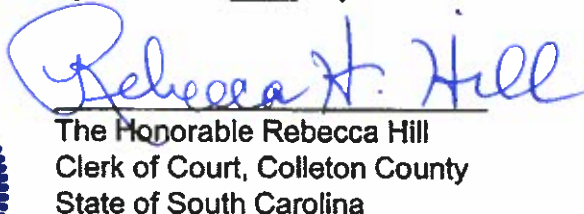 Rebecca H. Hill
The Honorable Rebecca Hill
Clerk of Court, Colleton County
State of South Carolina